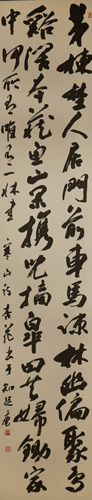 茅棟埜人居門前車馬疎林幽偏聚鳥
谿闊本藏魚山果攜兒摘皋田共婦鋤家
中何所有唯有一牀書 寒山詩